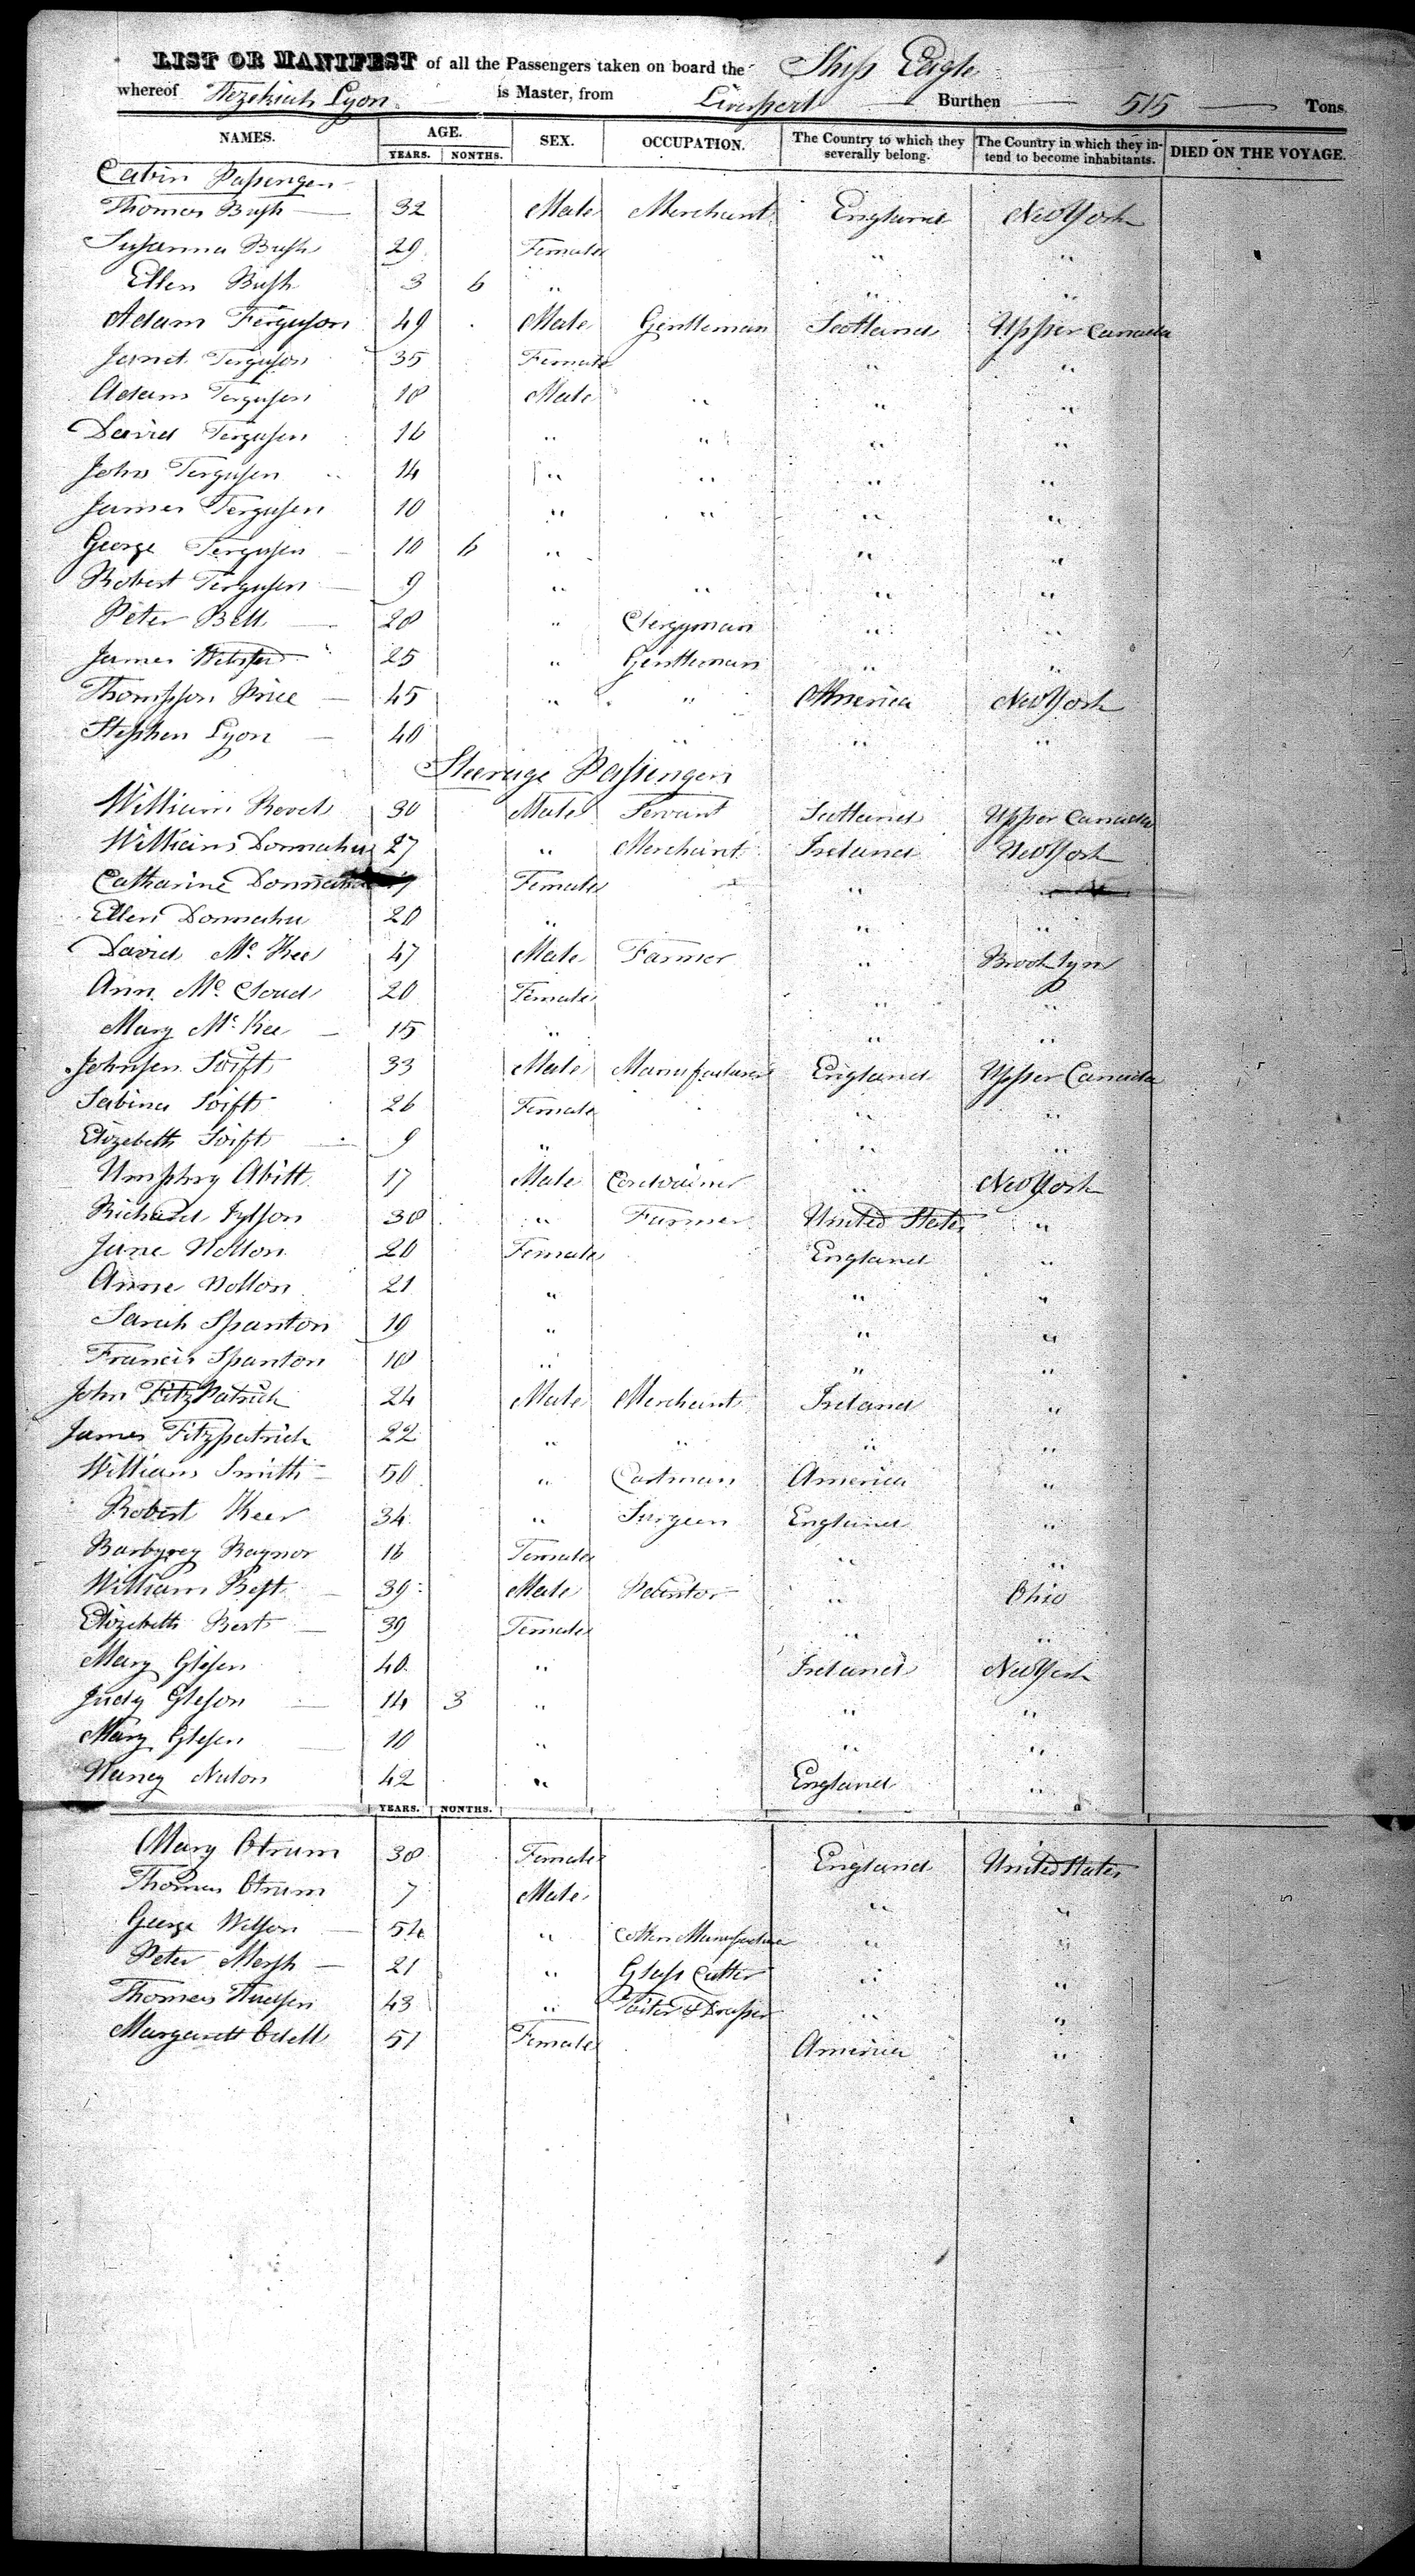 LIST OR MANIFEST of all the Passengers taken on board the Ship Eagle
whereof Hezekiah Lyon is Master, from Liverpool Burthen 515 Tons.
NAMES. AGE. SEX. OCCUPATION. The Country to which they severally belong. The Country in which they intend to become inhabitants. DIED ON THE VOYAGE.
YEARS. MONTHS.
Cabin Passengers
Thomas Bush 32 Male Merchant England New York
Susanna Bush 29 Female " "
Ellen Bush 3 6 " " "
Adam Ferguson 49 Male Gentleman Scotland Upper Canada
Janet Ferguson 35 Female " "
Adam Ferguson 18 Male " " "
David Ferguson 16 " " " "
John Ferguson 14 " " " "
James Ferguson 10 " " " "
George Ferguson 10 6 " " "
Robert Ferguson 9 " " " "
Peter Bell 28 " Clergyman " "
James Webster 25 " Gentleman " "
Thompson Price 45 " " America New York
Stephen Lyon 40 " " "
Steerage Passengers
William 30 Male Servant Scotland Upper Canada
William Donnahue 27 " Merchant Ireland New York
Catharine Donnahue Female "
Ellen Donnahue 20 " " "
David McKee 47 Male Farmer " Brooklyn
Ann McCloud 20 Female " "
Mary McKee 15 " " "
Johnson Swift 33 Male Manufacturer England Upper Canada
Sabina Swift 26 Female " "
Elizebeth Swift 9 " " "
Umphry Abitt 17 Male Cordwainer " New York
Richard 38 " Farmer United States "
Jane Notton 20 Female England "
Anne Notton 21 " " "
Sarah Spanton 19 " " "
Francis Spanton 18 " " "
John FitzPatrick 24 Male Merchant Ireland "
James Fitzpatrick 22 " " " "
William Smith 50 " Cartman America "
Robert Keer 34 " Surgeon England "
Raynor 16 Female " "
William Best 39 Male Painter " Ohio
Elizebeth Best 39 Female " "
Mary Gleson 40 " Ireland New York
Judy Gleson 14 3 " " "
Mary Gleson 10 " " "
Nancy Nuton 42 " England "
YEARS. MONTHS.
Mary Otrum 38 Female England United States
Thomas Otrum 7 Male " "
George Wilson 54 " Cotton Manufacturer " "
Peter Marsh 21 " Glass Cutter " "
Thomas Hudson 43 " " "
Margarett Odell 51 Female America "